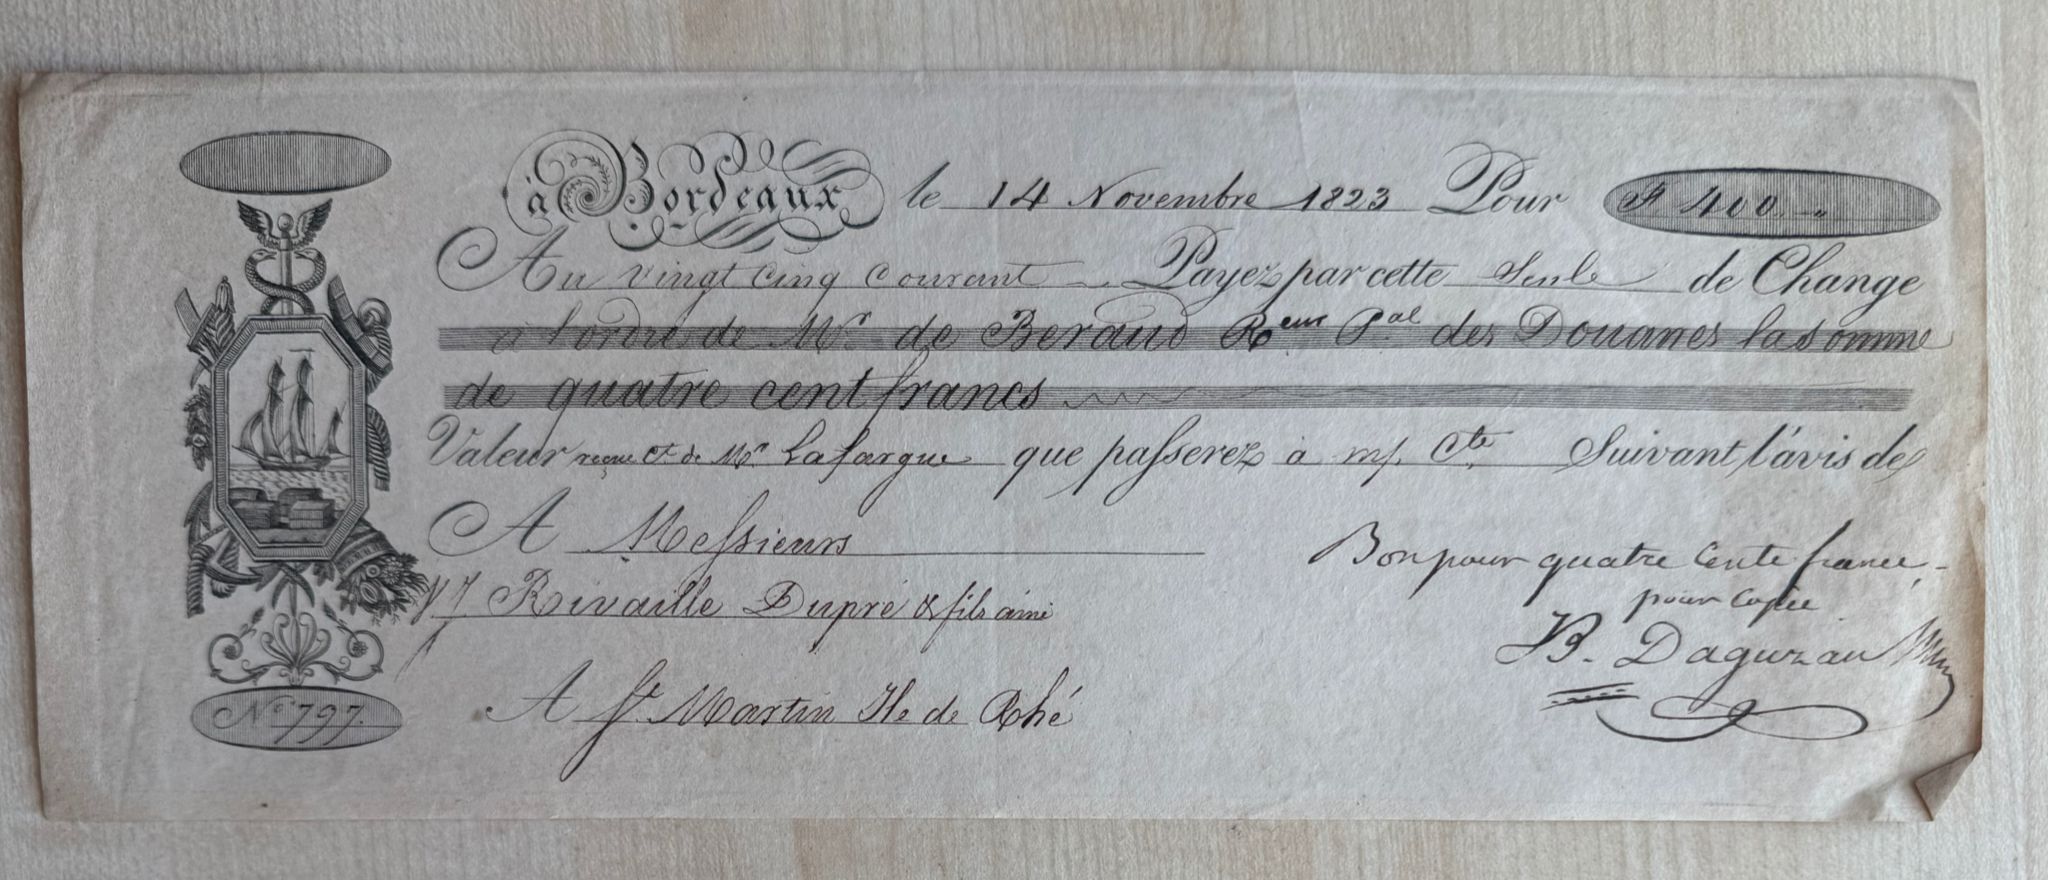 à Bordeaux le 14 Novembre 1823 Pour F 400.
Au vingt Cinq Courant Payez par cette Seule de Change
à l'ordre de Mr. de Beraud Reur Pal des Douanes la somme
de quatre cent francs
Valeur reçue Ct. de Mr. Lafargue que passerez à m/ Cte Suivant l'avis de
A Messieurs
Bon pour quatre Cents francs
Rivaille Dupré & fils ainé
pour
B. Daguzan
A St. Martin Ile de Rhé
No. 797.